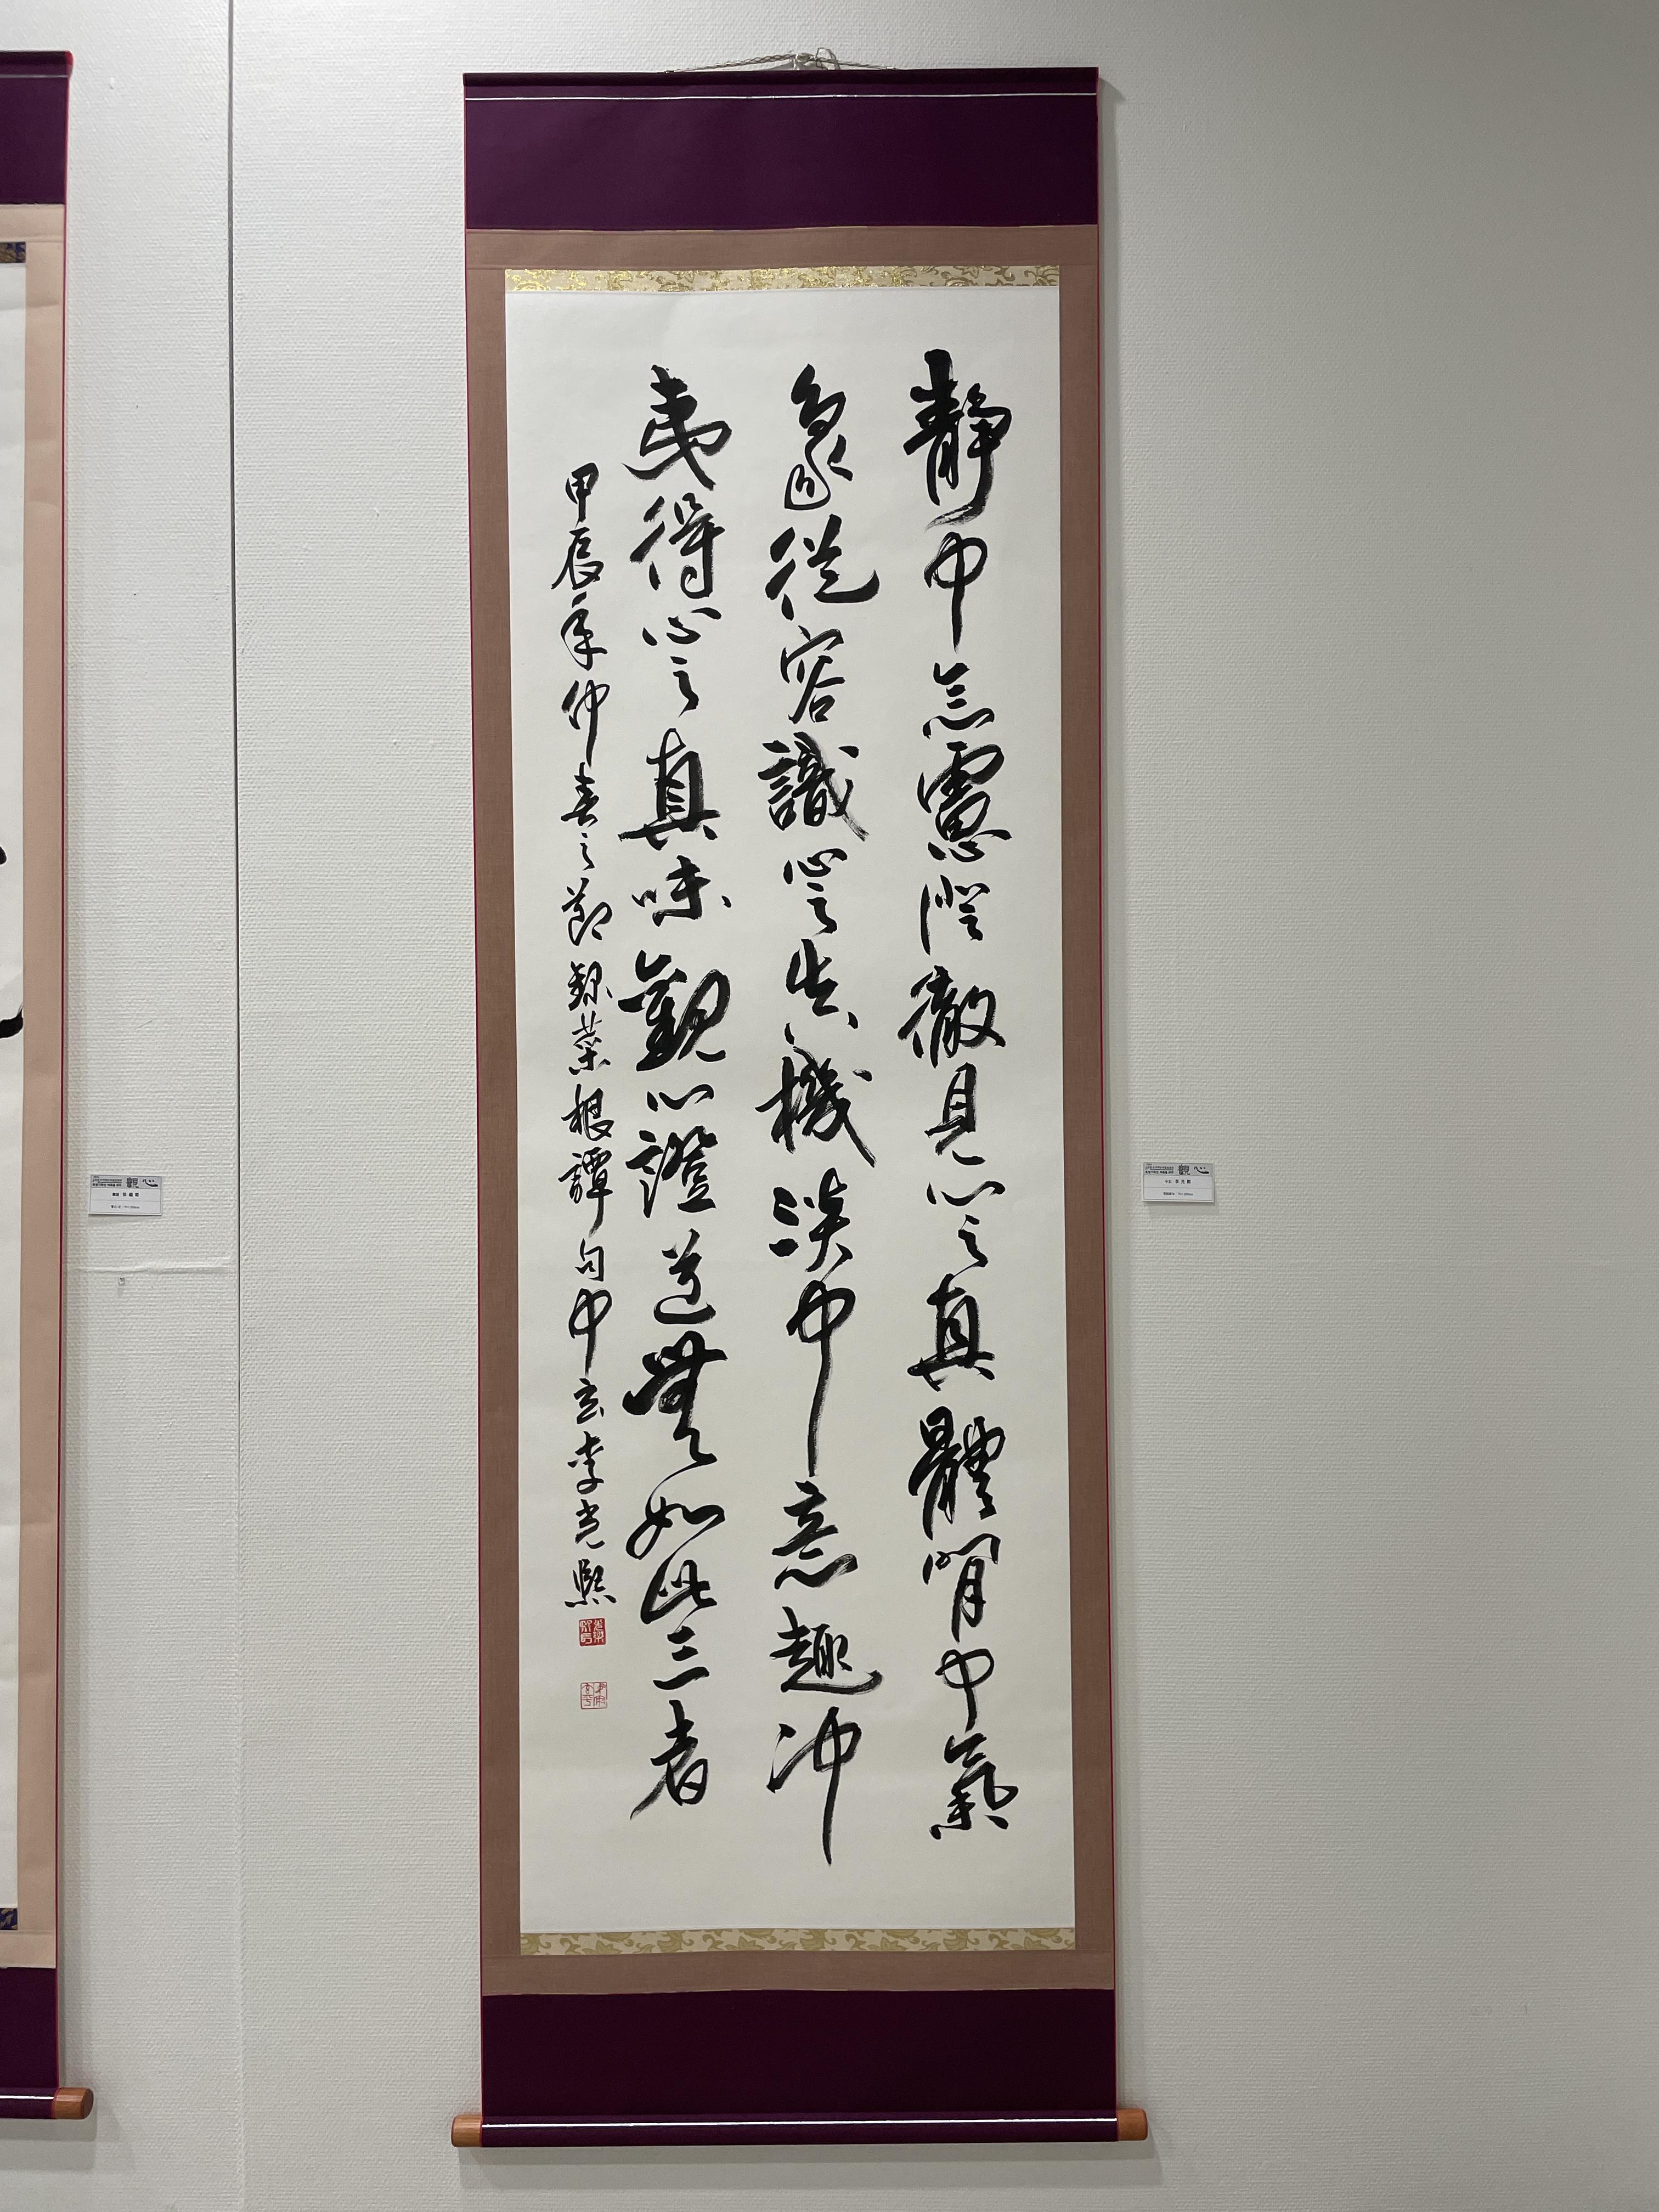 靜中念慮澄徹見心之真體閒中氣
象從容識心之真機淡中意趣冲
夷得心之真味觀心證道無如此三者
甲辰年仲春之節錄菜根譚句中玄李光熙
觀心
觀心